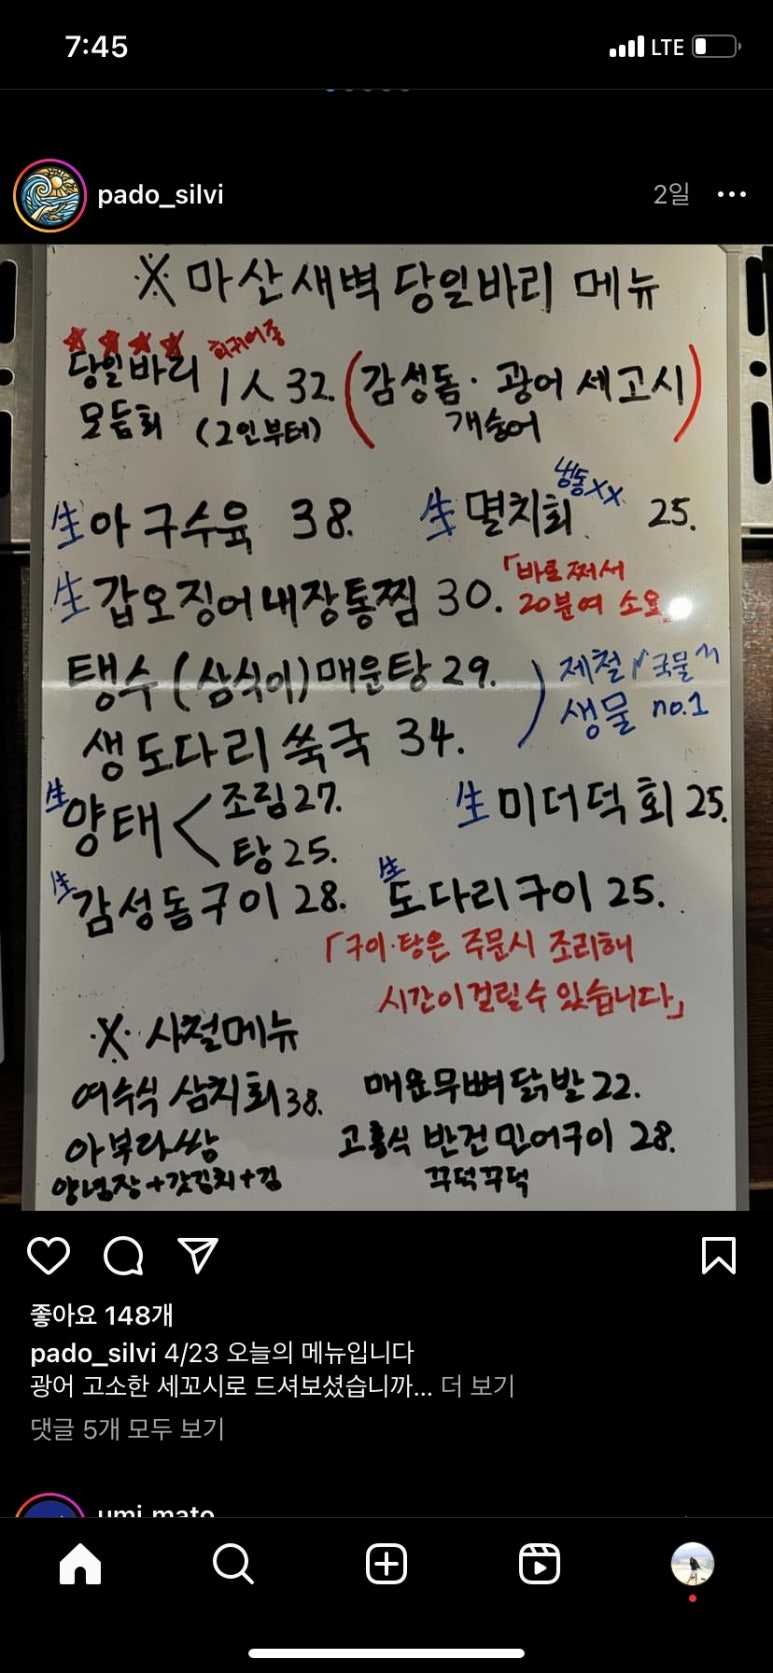 7:45 LTE
pado_silvi 2일
※ 마산새벽 당일바리 메뉴
당일바리 희귀어종 1人 32. (감성돔·광어 세고시)
모듬회 (2인부터) 개숭어
生 아구수육 38. 生 멸치회 냉동xx 25.
生 갑오징어내장통찜 30. 「바로쪄서
20분여 소요」
탱수(삼식이)매운탕 29. 제철 "국물"
생도다리쑥국 34. 생물 no.1
生 양태 < 조림 27. 生 미더덕회 25.
탕 25.
生 감성돔구이 28. 生 도다리구이 25.
「구이·탕은 주문시 조리해
시간이 걸릴수 있습니다」
※ 사절메뉴
여수식 삼치회 38. 매운무뼈닭발 22.
아부라쌈 고흥식 반건 민어구이 28.
양념장+갓김치+김 꾸덕꾸덕
좋아요 148개
pado_silvi 4/23 오늘의 메뉴입니다
광어 고소한 세꼬시로 드셔보셨습니까... 더 보기
댓글 5개 모두 보기
umi.mato